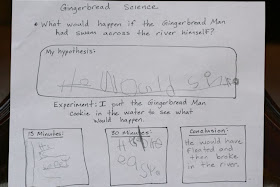 Gingerbread Science
• What would happen if the Gingerbread Man
had swam across the river himself?
My hypothesis:
He Would
Experiment: I put the Gingerbread Man
Cookie in the water to see what
would happen.
15 Minutes:
30 Minutes:
Conclusion:
He would have
floated and
then broke
in the river.